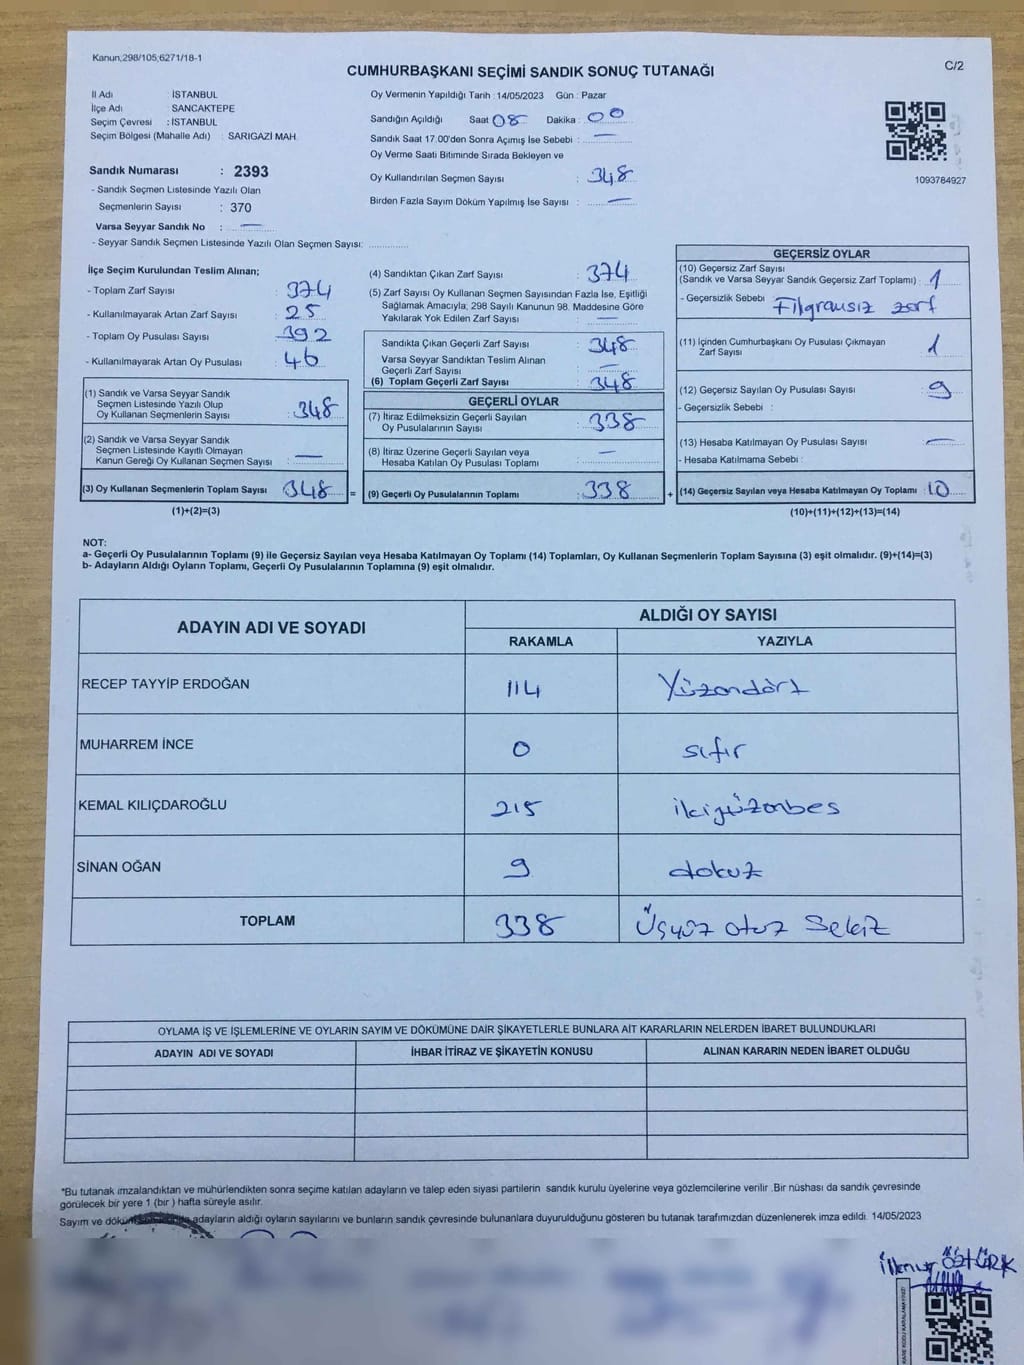 Kanun;298/105;6271/18-1
C/2
CUMHURBAŞKANI SEÇİMİ SANDIK SONUÇ TUTANAĞI
İl Adı : İSTANBUL
İlçe Adı : SANCAKTEPE
Seçim Çevresi : İSTANBUL
Seçim Bölgesi (Mahalle Adı) : SARIGAZİ MAH.
Sandık Numarası : 2393
- Sandık Seçmen Listesinde Yazılı Olan
Seçmenlerin Sayısı : 370
Varsa Seyyar Sandık No : —
- Seyyar Sandık Seçmen Listesinde Yazılı Olan Seçmen Sayısı: ............
Oy Vermenin Yapıldığı Tarih : 14/05/2023 Gün : Pazar
Sandığın Açıldığı Saat 08 Dakika : 00
Sandık Saat 17.00'den Sonra Açımış İse Sebebi : —
Oy Verme Saati Bitiminde Sırada Bekleyen ve
Oy Kullandırılan Seçmen Sayısı : 348
Birden Fazla Sayım Döküm Yapılmış İse Sayısı : —
1093784927
İlçe Seçim Kurulundan Teslim Alınan;
- Toplam Zarf Sayısı : 374
- Kullanılmayarak Artan Zarf Sayısı : 25
- Toplam Oy Pusulası Sayısı : 392
- Kullanılmayarak Artan Oy Pusulası : 46
(1) Sandık ve Varsa Seyyar Sandık
Seçmen Listesinde Yazılı Olup
Oy Kullanan Seçmenlerin Sayısı : 348
(2) Sandık ve Varsa Seyyar Sandık
Seçmen Listesinde Kayıtlı Olmayan
Kanun Gereği Oy Kullanan Seçmen Sayısı : —
(3) Oy Kullanan Seçmenlerin Toplam Sayısı : 348
(1)+(2)=(3)
(4) Sandıktan Çıkan Zarf Sayısı : 374
(5) Zarf Sayısı Oy Kullanan Seçmen Sayısından Fazla İse, Eşitliği
Sağlamak Amacıyla, 298 Sayılı Kanunun 98. Maddesine Göre
Yakılarak Yok Edilen Zarf Sayısı : —
Sandıkta Çıkan Geçerli Zarf Sayısı : 348
Varsa Seyyar Sandıktan Teslim Alınan
Geçerli Zarf Sayısı : —
(6) Toplam Geçerli Zarf Sayısı : 348
GEÇERLİ OYLAR
(7) İtiraz Edilmeksizin Geçerli Sayılan
Oy Pusulalarının Sayısı : 338
(8) İtiraz Üzerine Geçerli Sayılan veya
Hesaba Katılan Oy Pusulası Toplamı : —
= (9) Geçerli Oy Pusulalarının Toplamı : 338 +
GEÇERSİZ OYLAR
(10) Geçersiz Zarf Sayısı
(Sandık ve Varsa Seyyar Sandık Geçersiz Zarf Toplamı) : 1
- Geçersizlik Sebebi : Filgransız zarf
(11) İçinden Cumhurbaşkanı Oy Pusulası Çıkmayan
Zarf Sayısı : 1
(12) Geçersiz Sayılan Oy Pusulası Sayısı : 9
- Geçersizlik Sebebi :
(13) Hesaba Katılmayan Oy Pusulası Sayısı : —
- Hesaba Katılmama Sebebi :
(14) Geçersiz Sayılan veya Hesaba Katılmayan Oy Toplamı : 10
(10)+(11)+(12)+(13)=(14)
NOT:
a- Geçerli Oy Pusulalarının Toplamı (9) ile Geçersiz Sayılan veya Hesaba Katılmayan Oy Toplamı (14) Toplamları, Oy Kullanan Seçmenlerin Toplam Sayısına (3) eşit olmalıdır. (9)+(14)=(3)
b- Adayların Aldığı Oyların Toplamı, Geçerli Oy Pusulalarının Toplamına (9) eşit olmalıdır.
ADAYIN ADI VE SOYADI
ALDIĞI OY SAYISI
RAKAMLA YAZIYLA
RECEP TAYYİP ERDOĞAN 114 Yüzondört
MUHARREM İNCE 0 sıfır
KEMAL KILIÇDAROĞLU 215 ikiyüzonbes
SİNAN OĞAN 9 dokuz
TOPLAM 338 Üçyüz otuz sekiz
OYLAMA İŞ VE İŞLEMLERİNE VE OYLARIN SAYIM VE DÖKÜMÜNE DAİR ŞİKAYETLERLE BUNLARA AİT KARARLARIN NELERDEN İBARET BULUNDUKLARI
ADAYIN ADI VE SOYADI İHBAR İTİRAZ VE ŞİKAYETİN KONUSU ALINAN KARARIN NEDEN İBARET OLDUĞU
*Bu tutanak imzalandıktan ve mühürlendikten sonra seçime katılan adayların ve talep eden siyasi partilerin sandık kurulu üyelerine veya gözlemcilerine verilir .Bir nüshası da sandık çevresinde
görülecek bir yere 1 (bir ) hafta süreyle asılır.
Sayım ve adayların aldığı oyların sayılarını ve bunların sandık çevresinde bulunanlara duyurulduğunu gösteren bu tutanak tarafımızdan düzenlenerek imza edildi. 14/05/2023
ÖZTÜRK